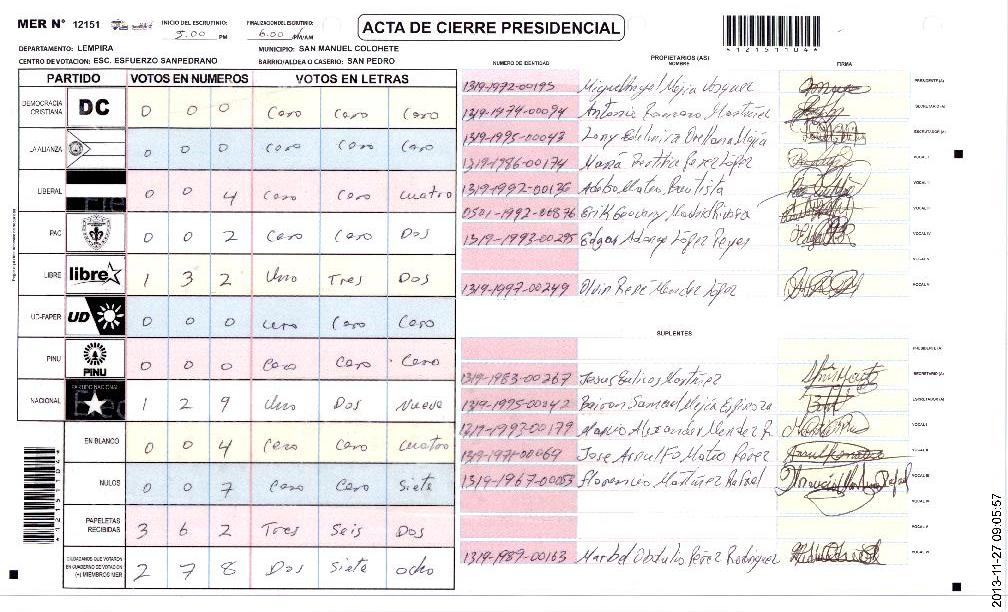 MER N° 12151 INICIO DEL ESCRUTINIO: 5.00 PM FINALIZACION DEL ESCRUTINIO: 6.00 PM/AM ACTA DE CIERRE PRESIDENCIAL
DEPARTAMENTO: LEMPIRA MUNICIPIO: SAN MANUEL COLOHETE
CENTRO DE VOTACION: ESC. ESFUERZO SANPEDRANO BARRIO/ALDEA O CASERIO: SAN PEDRO
PARTIDO VOTOS EN NUMEROS VOTOS EN LETRAS
DEMOCRACIA CRISTIANA DC 0 0 0 Cero Cero Cero
LA ALIANZA 0 0 0 Cero Cero Cero
LIBERAL 0 0 4 Cero Cero cuatro
PAC 0 0 2 Cero Cero Dos
LIBRE libre 1 3 2 Uno Tres Dos
UD-FAPER UD 0 0 0 Cero Cero Cero
PINU PINU 0 0 0 Cero Cero Cero
NACIONAL PARTIDO NACIONAL 1 2 9 Uno Dos Nueve
EN BLANCO 0 0 4 Cero Cero cuatro
NULOS 0 0 7 Cero Cero Siete
PAPELETAS RECIBIDAS 3 6 2 Tres Seis Dos
CIUDADANOS QUE VOTARON EN CUADERNO DE VOTACION (+) MIEMBROS MER 2 7 8 Dos Siete ocho
*12151104*
PROPIETARIOS (AS)
NUMERO DE IDENTIDAD NOMBRE FIRMA
1319-1972-00195 Miguel Angel Mejia Vasquez PRESIDENTE (A)
1319-1974-00094 Antonio Romero Martinez SECRETARIO (A)
1319-1995-00043 Orellana Mejia ESCRUTADOR (A)
1319-1986-00174 Maria Perez López VOCAL I
1319-1992-00136 Mateo Bautista VOCAL II
0501-1992-00876 Erik Geovany Madrid VOCAL III
1319-1993-00295 Edgar López Reyes VOCAL IV
VOCAL V
1319-1997-00249 Olvin René Mendez López VOCAL VI
SUPLENTES
PRESIDENTE (A)
1319-1983-00267 Martinez SECRETARIO (A)
1319-1995-00242 Samuel Mejia Espinoza ESCRUTADOR (A)
1319-1993-00179 Alexander Mendez R. VOCAL I
00069 Jose Arnulfo Mateo Pérez VOCAL II
1319-1967-00053 Florencio Martinez Rafael VOCAL III
VOCAL IV
VOCAL V
1319-1989-00163 Maribel Pérez Rodriguez VOCAL VI
*12151104*
2013-11-27 09:05:57